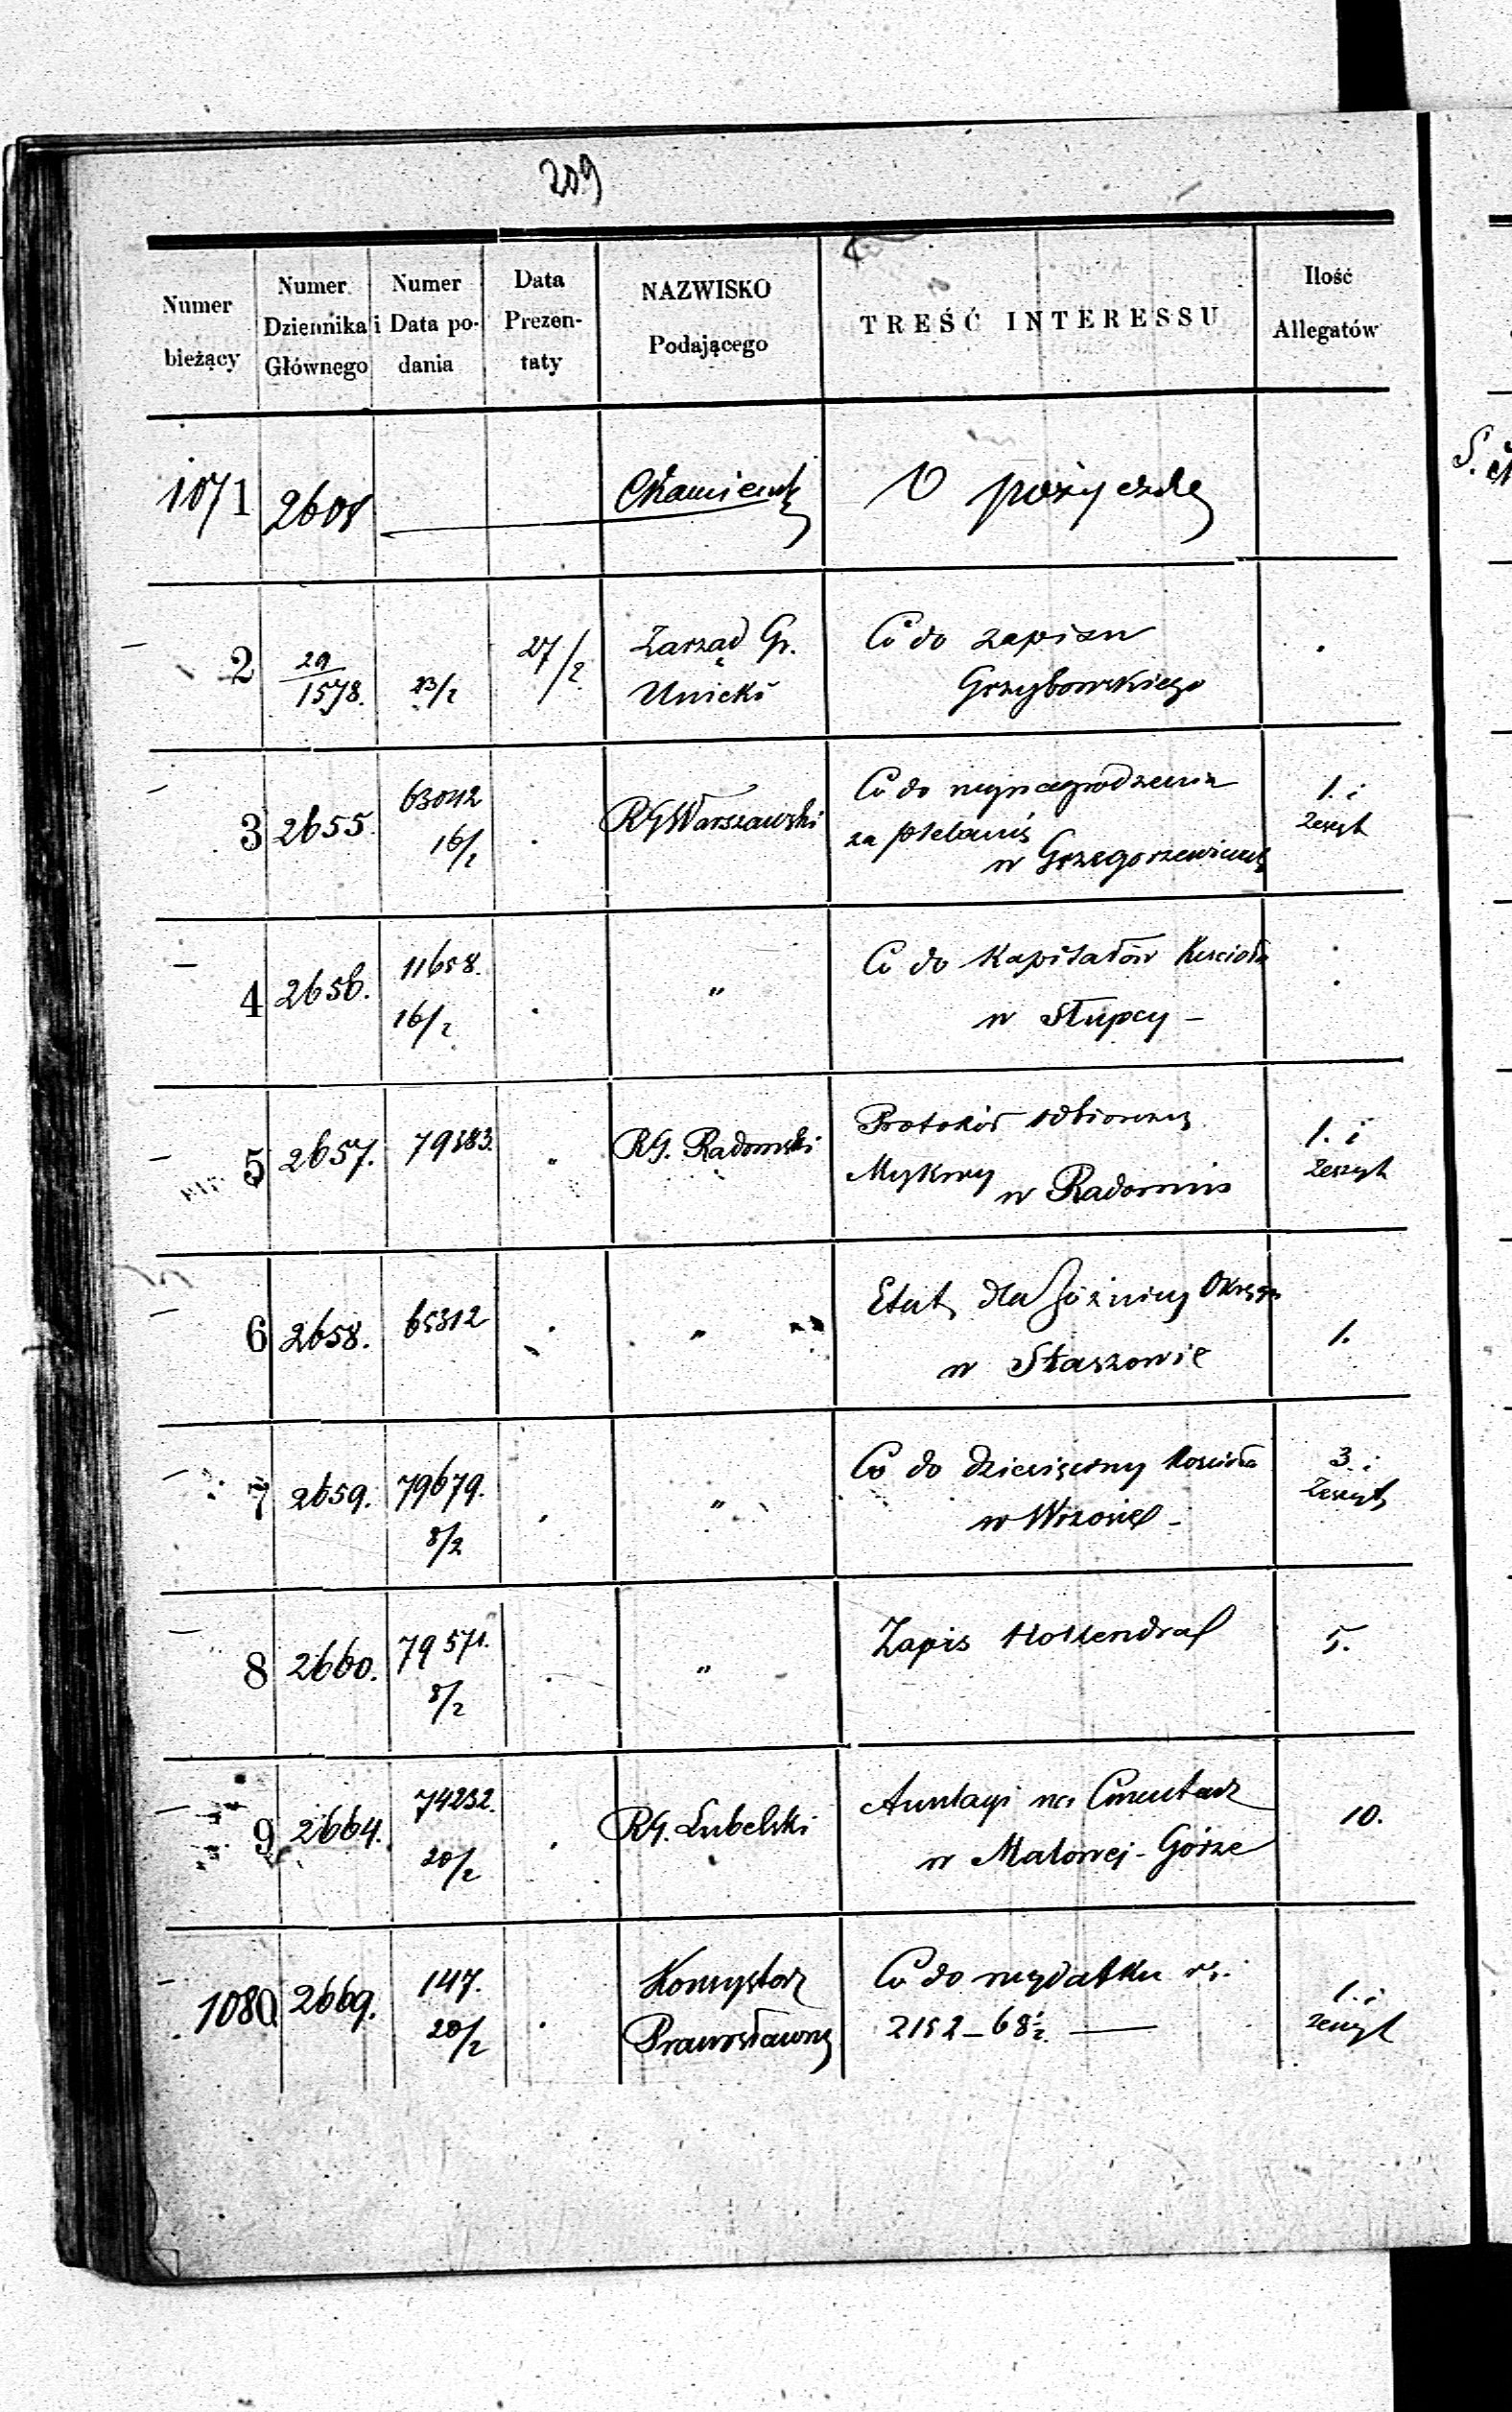 209
Numer bieżący
Numer Dziennika Głównego
Numer i Data podania
Data Prezen-taty
NAZWISKO Podającego
TREŚĆ INTERESSU
Ilość Allegatów
1071 2608 O pożyczkę
2 29/1578. 23/2 27/2 Zarząd Gr. Co do zapisu
Unicki Grzybowskiego
3 2655. 63042 16/2 . RG Warszawski Co do wynagrodzenia 1. i
za w Grzegorzewicach Zeszyt
4 2656. 11658. 16/2 . " Co do Kapitałów Kościoła
w Słupcy –
5 2657. 79383. . RG. Radomski Protokół odbiorczy 1. i
w Radomiu Zeszyt
6 2658. 65312 . " Etat dla Okręgu 1.
w Staszowie
7 2659. 79679. 8/2 . " Co do dziesięciny Kościoła 3. i
w Zeszyt
8 2660. 79571. 8/2 . " Zapis 5.
9 2664. 74232. 20/2 . RG. Lubelski na Cmentarz 10.
w Górze
1080 2669. 147. 20/2 . Konsystorz Co do wydatku rs. 1. i
Prawosławny 2152–68½. — Zeszyt